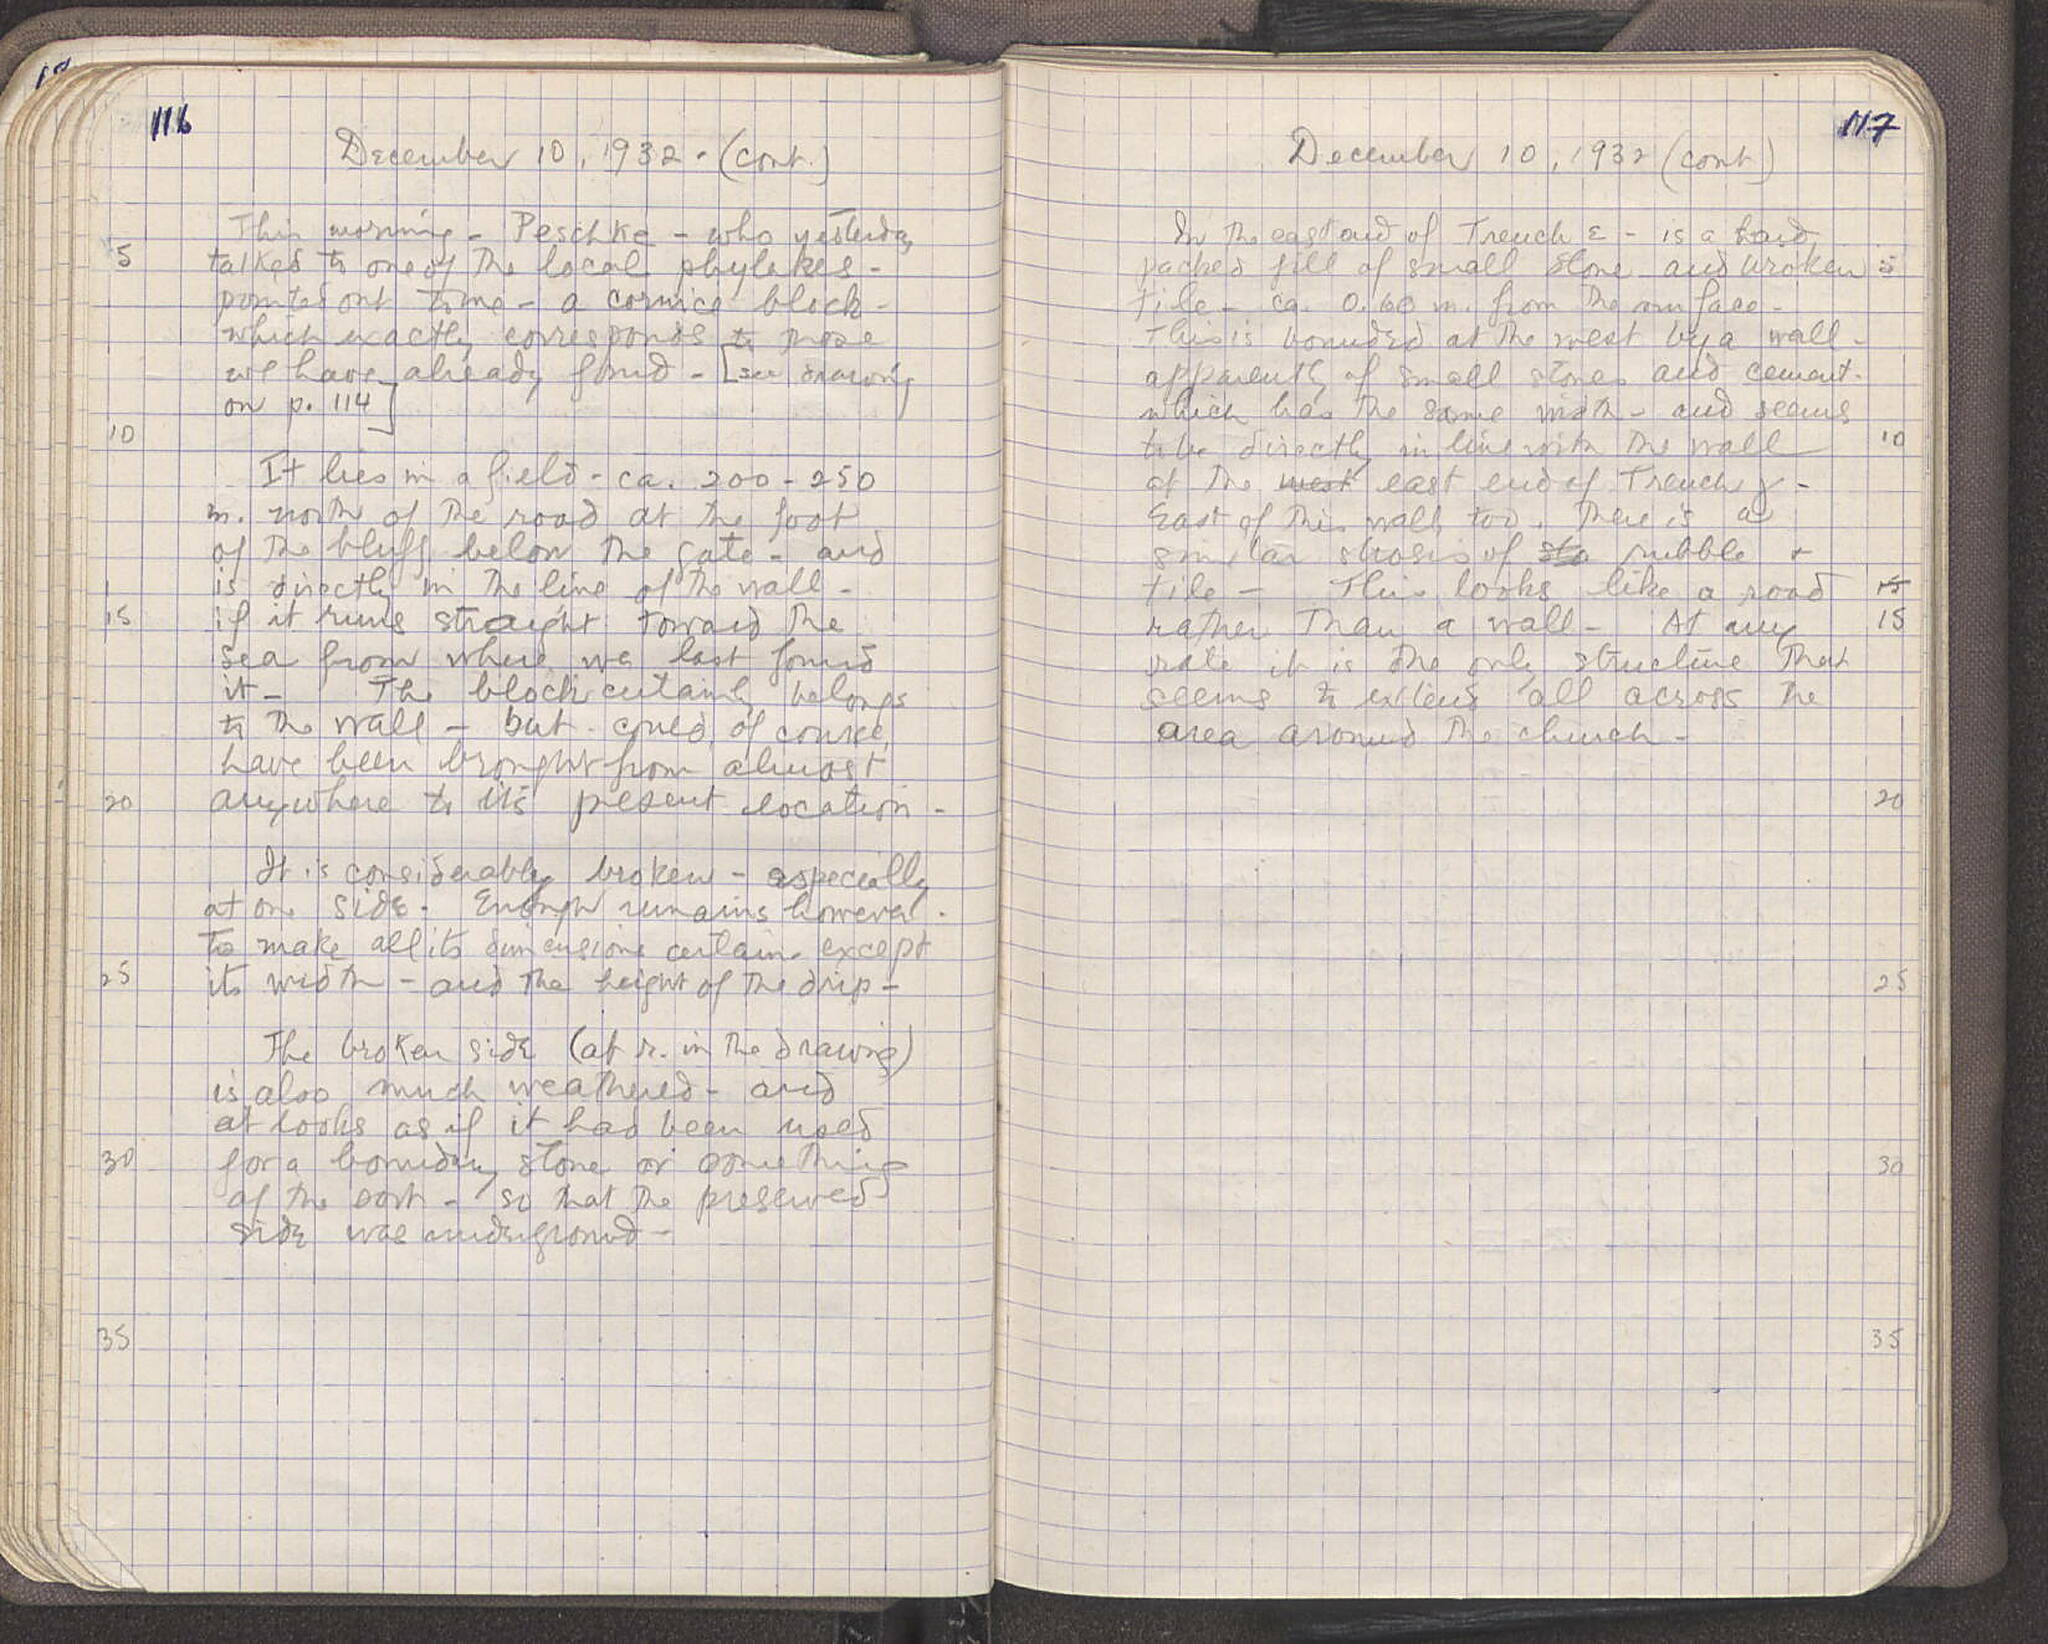 116
December 10, 1932 - (cont.)
This morning - Peschke - who yesterday
5
talked to one of the local phylakes -
pointed out to me - a cornice block -
which exactly corresponds to those
we have already found - [see drawing
on p. 114]
10
It lies in a field - ca. 200 - 250
m. north of the road at the foot
of the bluff below the gate - and
is directly in the line of the wall -
15
if it runs straight toward the
sea from where we last found
it - The block certainly belongs
to the wall - but could, of course,
have been brought from almost
20
anywhere to its present location -
It is considerably broken - especially
at one side. Enough remains however.
to make all its dimensions certain - except
25
its width - and the height of the drip -
The broken side (at r. in the drawing)
is also much weathered - and
at looks as if it had been used
30
for a boundary stone or something
of the sort - so that the preserved
side was underground -
35
117
December 10, 1932 (cont)
In the east end of Trench ε - is a hard,
packed fill of small stone and broken
5
tile - ca. 0.60 m. from the surface -
This is bounded at the west by a wall -
apparently of small stones and cement -
which has the same width - and seems
to be directly in line with the wall
10
at the west east end of Trench γ -
East of this wall, too, there is a
similar strosis of sto rubble +
tile - This looks like a road
15
rather than a wall - At any
15
rate it is the only structure that
seems to extend all across the
area around the church -
20
25
30
35